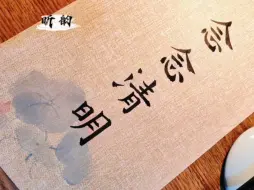 昕韵
念念清明